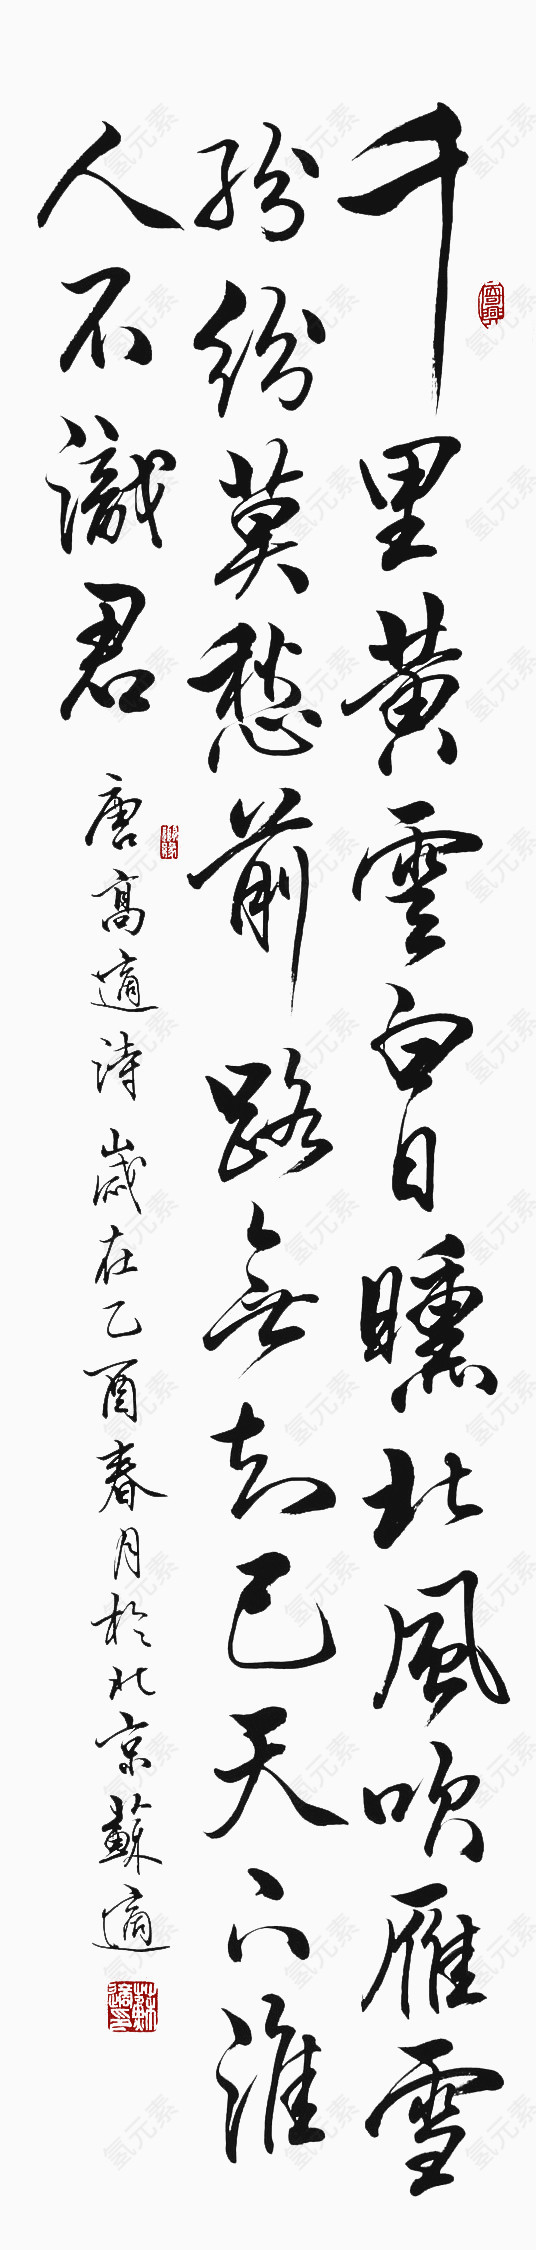 千里黃雲白日曛北風吹雁雪
紛紛莫愁前路無知己天下誰
人不識君
唐高適詩歲在乙酉春月於北京蘇適
蘇適
氢元素